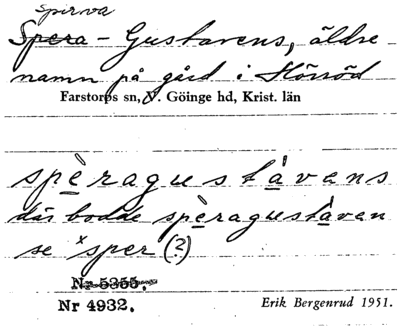 Spirva
Spera - Gustavens, äldre
namn på gård i Hörröd
Farstorps sn, V. Göinge hd, Krist. län
spèragustàvens
där bodde spèragustàven
se ˣsper (?)
Nr 5355.
Nr 4932.
Erik Bergenrud 1951.